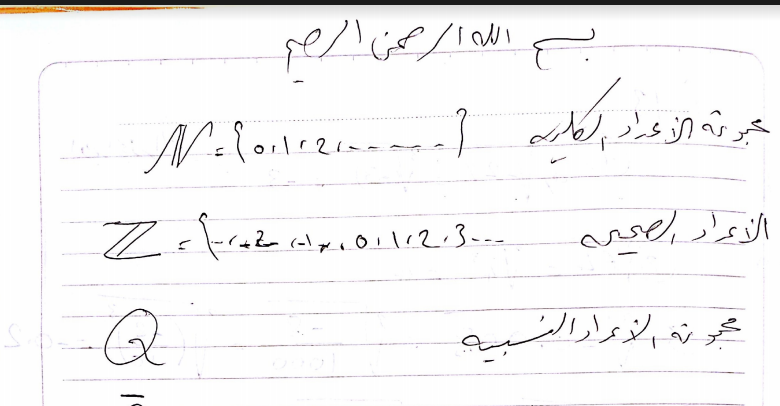 بسم الله الرحمن الرحيم
مجموعة الأعداد الكلية N = {0,1,2,------}
الأعداد الصحيحة Z = {--,-2,-1,0,1,2,3---
مجموعة الأعداد النسبية Q